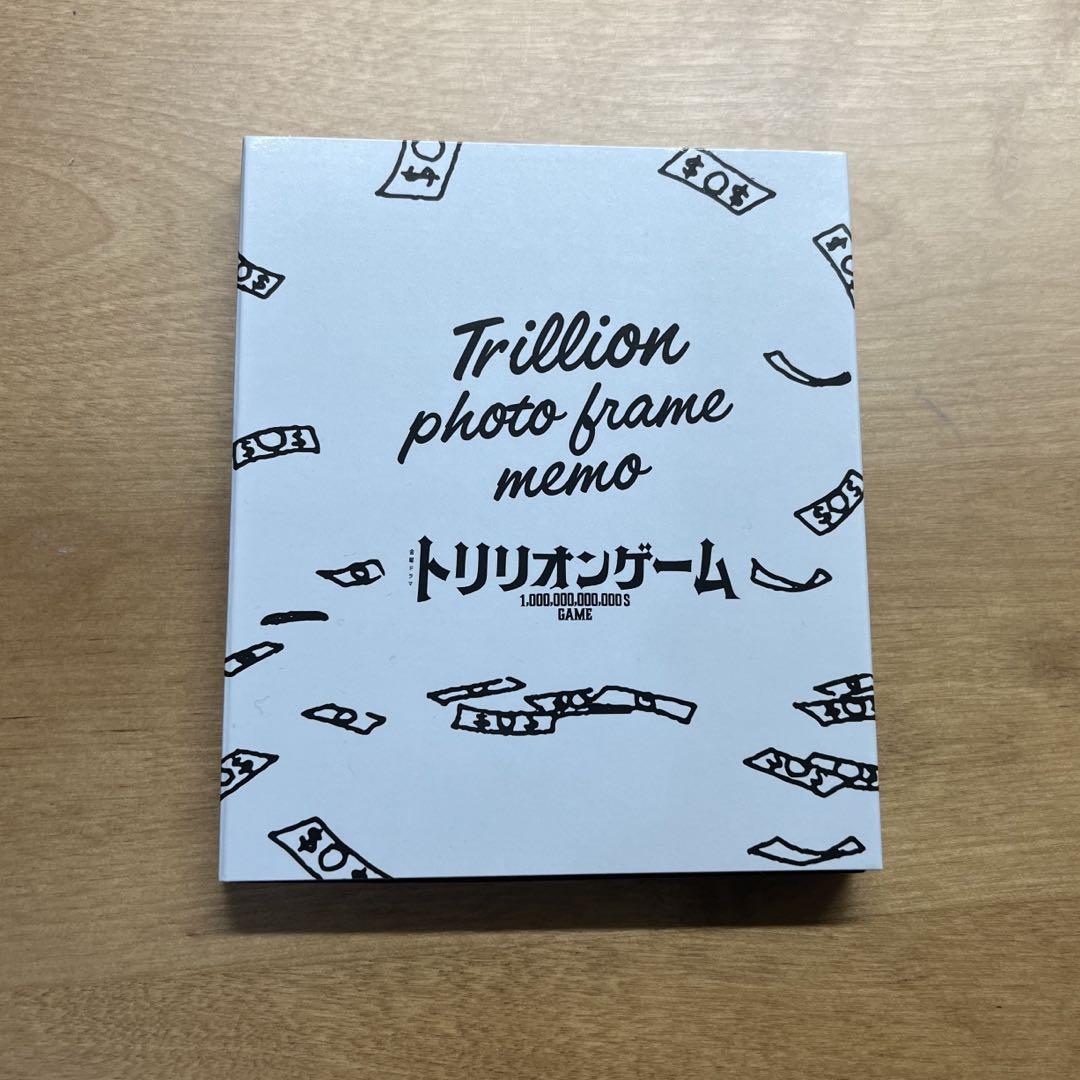 Trillion
photo frame
memo
金曜ドラマ
トリリオンゲーム
1,000,000,000,000$
GAME